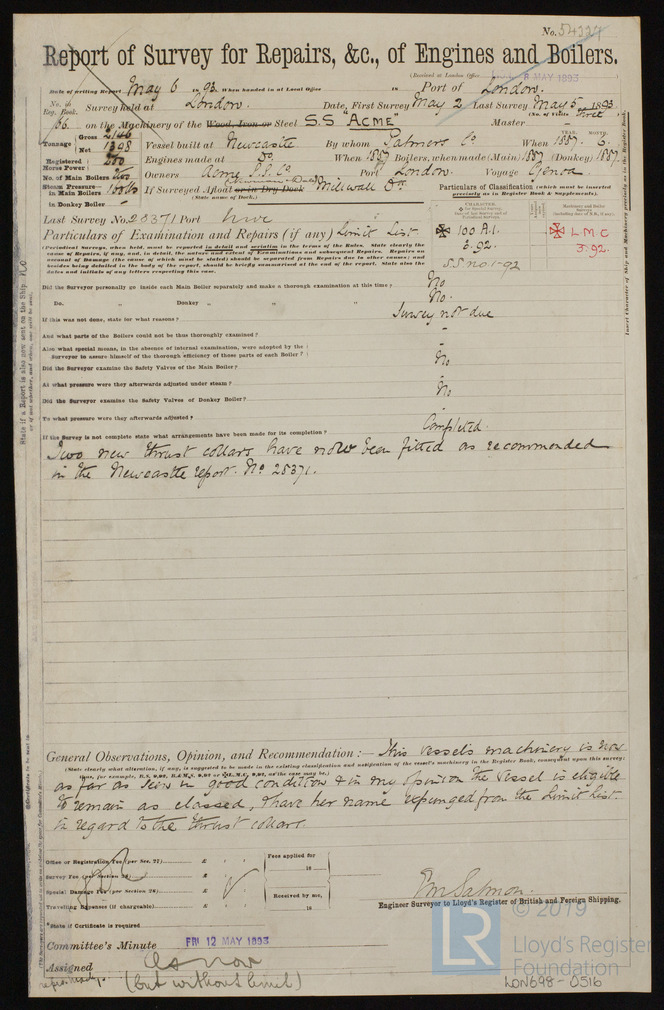 No. 54324
Report of Survey for Repairs, &c., of Engines and Boilers.
(Received at London Office 8 MAY 1893
Date of writing Report May 6 1893 When handed in at Local Office 18 Port of London.
No. in Reg. Book. Survey held at London. Date, First Survey May 2 Last Survey May 5 1893
(No. of Visits three)
66 on the Machinery of the Wood, Iron or Steel S.S "ACME" Master -
Tonnage Gross 2146 Net 1398 Vessel built at Newcastle By whom Palmers Co When YEAR. 1887. MONTH. 6.
Registered Horse Power 200 Engines made at Do. When 1887 Boilers, when made (Main) 1887 (Donkey) 1887
No. of Main Boilers Owners Acme S.S. Co. Port London. Voyage Genoa
Steam Pressure in Main Boilers If Surveyed Afloat or in Dry Dock Millwall Dk
(State name of Dock.)
in Donkey Boiler -
Particulars of Classification (which must be inserted precisely as in Register Book & Supplements).
Last Survey No. Port
CHARACTER.
100 A.1.
3.92.
S.S. no. 1-92
LMC
3.92.
Particulars of Examination and Repairs (if any) Limit List
(Periodical Surveys, when held, must be reported in detail and seriatim in the terms of the Rules. State clearly the
cause of Repairs, if any, and, in detail, the nature and extent of Examinations and subsequent Repairs. Repairs on
account of Damage (the cause of which must be stated) should be separated from Repairs due to other causes; and
besides being detailed in the body of the report, should be briefly summarised at the end of the report. State also the
dates and initials of any letters respecting this case.)
Did the Surveyor personally go inside each Main Boiler separately and make a thorough examination at this time? No
Do. „ Donkey „ „ „ ? No.
If this was not done, state for what reasons? Survey not due
And what parts of the Boilers could not be thoroughly examined? -
Also what special means, in the absence of internal examination, were adopted by the
Surveyor to assure himself of the thorough efficiency of those parts of each Boiler? -
Did the Surveyor examine the Safety Valves of the Main Boiler? No
At what pressure were they afterwards adjusted under steam? -
Did the Surveyor examine the Safety Valves of Donkey Boiler? No
To what pressure were they afterwards adjusted? -
If the Survey is not complete state what arrangements have been made for its completion? Completed.
Two new thrust collars have now been fitted as recommended
in the Newcastle report. No 28371.
General Observations, Opinion, and Recommendation :— This vessel's machinery is now
(State clearly what alteration, if any, is suggested to be made in the existing classification and notification of the vessel's machinery in the Register Book, consequent upon this survey;
as far as seen in good condition & in my opinion the vessel is eligible
to remain as classed, & have her name expunged from the Limit List.
in regard to the thrust collars.
Office or Registration Fee (per Sec. 27) £ : :
Survey Fee (per Section 28) £ : :
Special Damage Fee (per Section 28) £ : :
Travelling Expenses (if chargeable) £ : :
Fees applied for
18
Received by me,
18
Engineer Surveyor to Lloyd's Register of British and Foreign Shipping.
*State if Certificate is required
Committee's Minute FRI 12 MAY 1893
Assigned As now
(but without limit)
© 2019
LR
Lloyd's Register
Foundation
LON698-0516
State if a Report is also now sent on the Ship. No
Insert Character of Ship and Machinery precisely as in the Register Book.